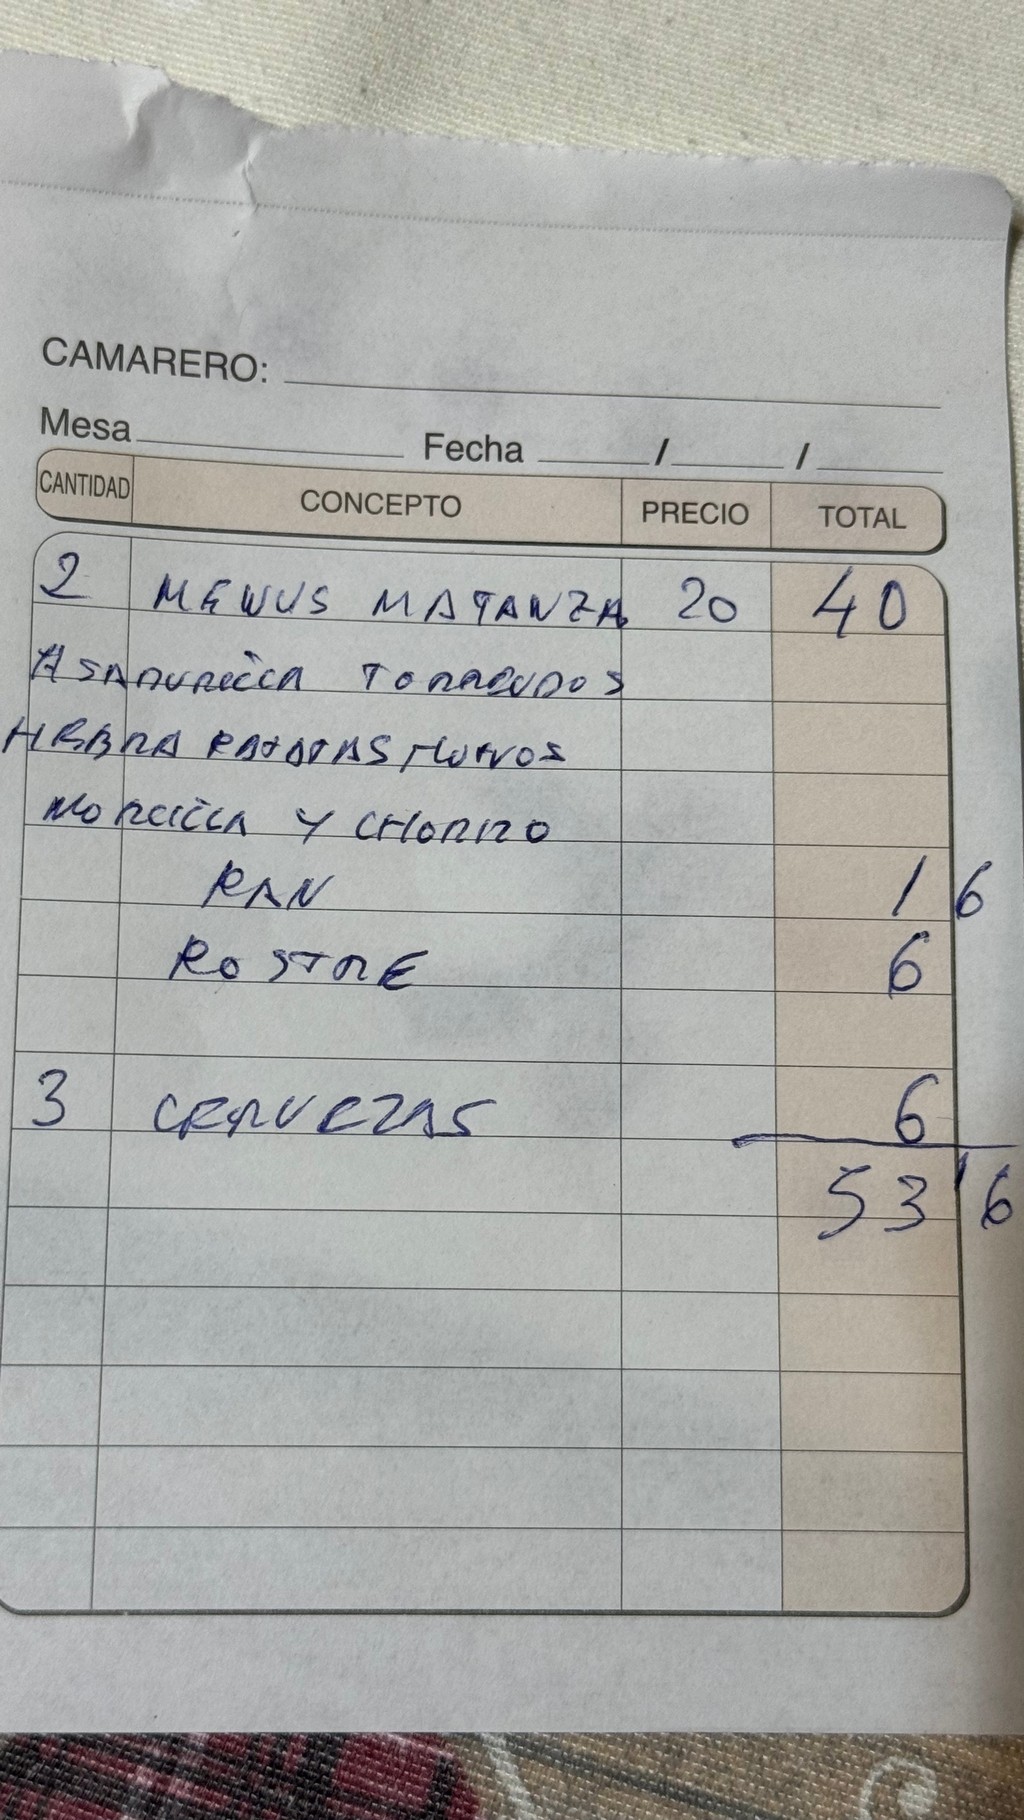 CAMARERO:
Mesa Fecha / /
CANTIDAD CONCEPTO PRECIO TOTAL
2 MENUS MATANZA 20 40
ASADURILLA TORREZNOS
HEBRA PATATAS HUEVOS
MORCILLA Y CHORIZO
PAN 1 6
POSTRE 6
3 CERVEZAS 6
53'6